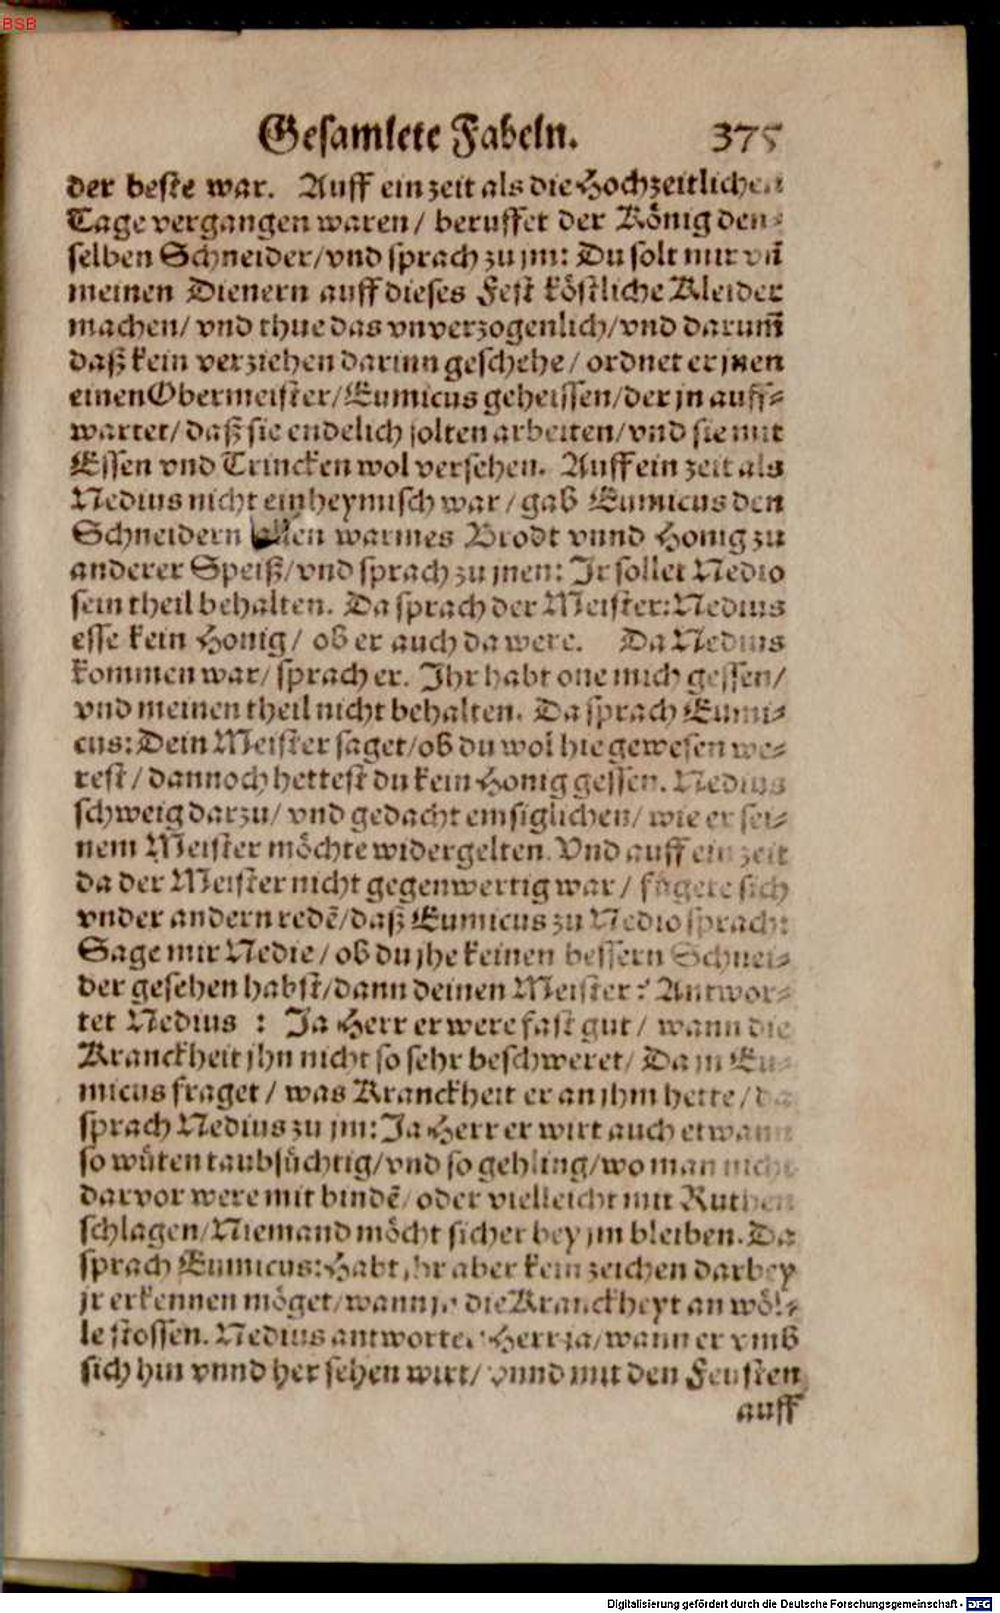 BSB
Gesamlete Fabeln. 375
der beste war. Auff ein zeit als die Hochzeitlichen
Tage vergangen waren / beruffet der König den-
selben Schneider/vnd sprach zu jm: Du solt mir vñ
meinen Dienern auff dieses Fest köstliche Kleider
machen/ vnd thue das vnverzogenlich/vnd darum̃
daß kein verziehen darinn geschehe / ordnet er jnen
einen Obermeister/Eumicus geheissen/der jn auff-
wartet/ daß sie endelich solten arbeiten/vnd sie mit
Essen vnd Trincken wol versehen. Auff ein zeit als
Nedius nicht einheymisch war / gab Eumicus den
Schneidern allen warmes Brodt vnnd Honig zu
anderer Speiß/vnd sprach zu jnen: Jr sollet Nedio
sein theil behalten. Da sprach der Meister: Nedius
esse kein Honig/ ob er auch da were. Da Nedius
kommen war/ sprach er. Ihr habt one mich gessen/
vnd meinen theil nicht behalten. Da sprach Eumi-
cus: Dein Meister saget/ob du wol hie gewesen we-
rest / dannoch hettest du kein Honig gessen. Nedius
schweig darzu/ vnd gedacht emsiglichen/ wie er sei-
nem Meister möchte widergelten. Vnd auff ein zeit
da der Meister nicht gegenwertig war / fügete sich
vnder andern redẽ/daß Eumicus zu Nedio sprach:
Sage mir Nedie / ob du jhe keinen bessern Schnei-
der gesehen habst/dann deinen Meister? Antwor-
tet Nedius : Ja Herr er were fast gut / wann die
Kranckheit jhn nicht so sehr beschweret/ Da jn Eu-
micus fraget / was Kranckheit er an jhm hette / da
sprach Nedius zu jm: Ja Herr er wirt auch etwann
so wüten taubsüchtig/vnd so gehling/wo man nicht
darvor were mit bindẽ/ oder vielleicht mit Ruthen
schlagen/Niemand möcht sicher bey jm bleiben. Da
sprach Eumicus: Habt jhr aber kein zeichen darbey
jr erkennen möget/wann jn die Kranckheyt an wöl-
le stossen. Nedius antwortet Herr ja/wann er vmb
sich hin vnnd her sehen wirt/ vnnd mit den Feusten
auff
Digitalisierung gefördert durch die Deutsche Forschungsgemeinschaft - DFG